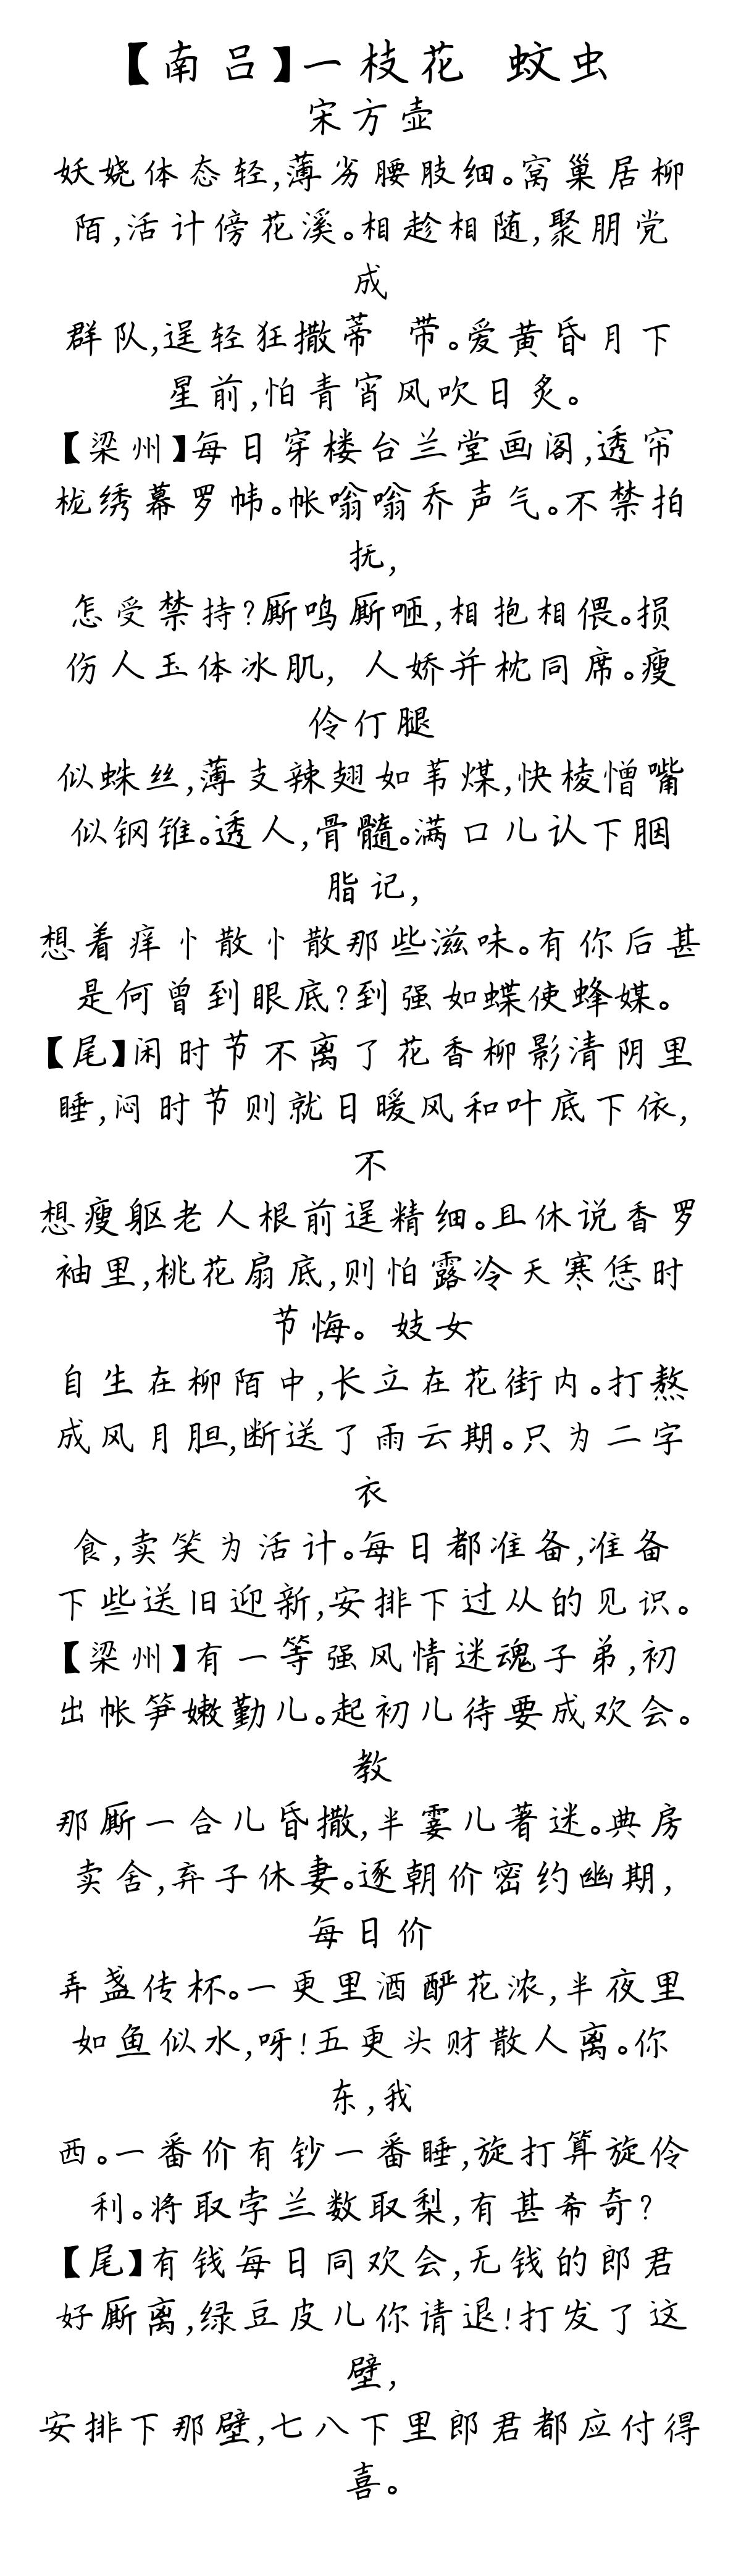 【南吕】一枝花 蚊虫
宋方壶
妖娆体态轻,薄劣腰肢细。窝巢居柳
陌,活计傍花溪。相趁相随,聚朋党
成
群队,逞轻狂撒蒂 带。爱黄昏月下
星前,怕青宵风吹日炙。
【梁州】每日穿楼台兰堂画阁,透帘
栊绣幕罗帏。帐嗡嗡乔声气。不禁拍
抚,
怎受禁持?厮鸣厮咂,相抱相偎。损
伤人玉体冰肌, 人娇并枕同席。瘦
伶仃腿
似蛛丝,薄支辣翅如苇煤,快棱憎嘴
似钢锥。透人,骨髓。满口儿认下胭
脂记,
想着痒忄散忄散那些滋味。有你后甚
是何曾到眼底?到强如蝶使蜂媒。
【尾】闲时节不离了花香柳影清阴里
睡,闷时节则就日暖风和叶底下依,
不
想瘦躯老人根前逞精细。且休说香罗
袖里,桃花扇底,则怕露冷天寒恁时
节悔。 妓女
自生在柳陌中,长立在花街内。打熬
成风月胆,断送了雨云期。只为二字
衣
食,卖笑为活计。每日都准备,准备
下些送旧迎新,安排下过从的见识。
【梁州】有一等强风情迷魂子弟,初
出帐笋嫩勤儿。起初儿待要成欢会。
教
那厮一合儿昏撒,半霎儿著迷。典房
卖舍,弃子休妻。逐朝价密约幽期,
每日价
弄盏传杯。一更里酒酽花浓,半夜里
如鱼似水,呀!五更头财散人离。你
东,我
西。一番价有钞一番睡,旋打算旋伶
利。将取孛兰数取梨,有甚希奇?
【尾】有钱每日同欢会,无钱的郎君
好厮离,绿豆皮儿你请退!打发了这
壁,
安排下那壁,七八下里郎君都应付得
喜。